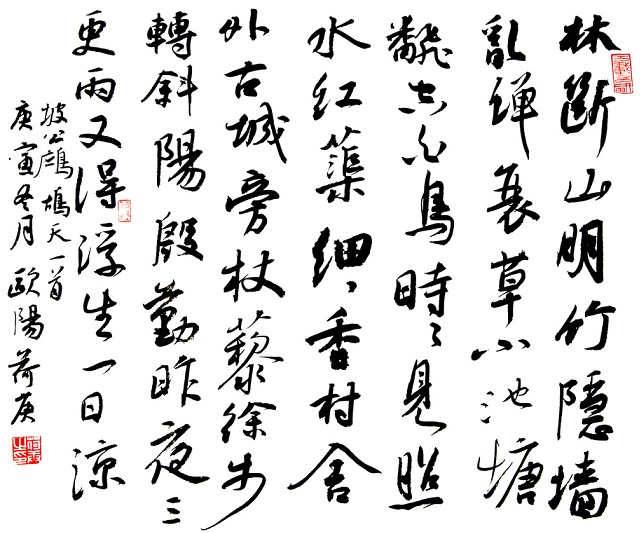 林斷山明竹隱墙
亂蟬衰草小池塘
飜空白鳥時〻見照
水紅蕖細〻香村舍
外古城旁杖藜徐步
轉斜陽殷勤昨夜三
更雨又得浮生一日涼
坡公鷓鴣天一首
庚寅冬月 歐陽荷庚